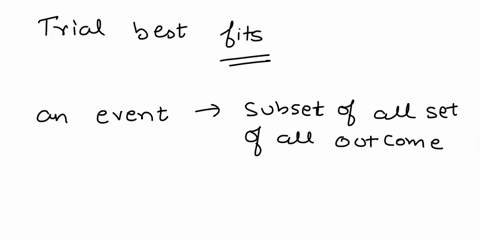 Trial best fits
an event → subset of all set
of all outcome